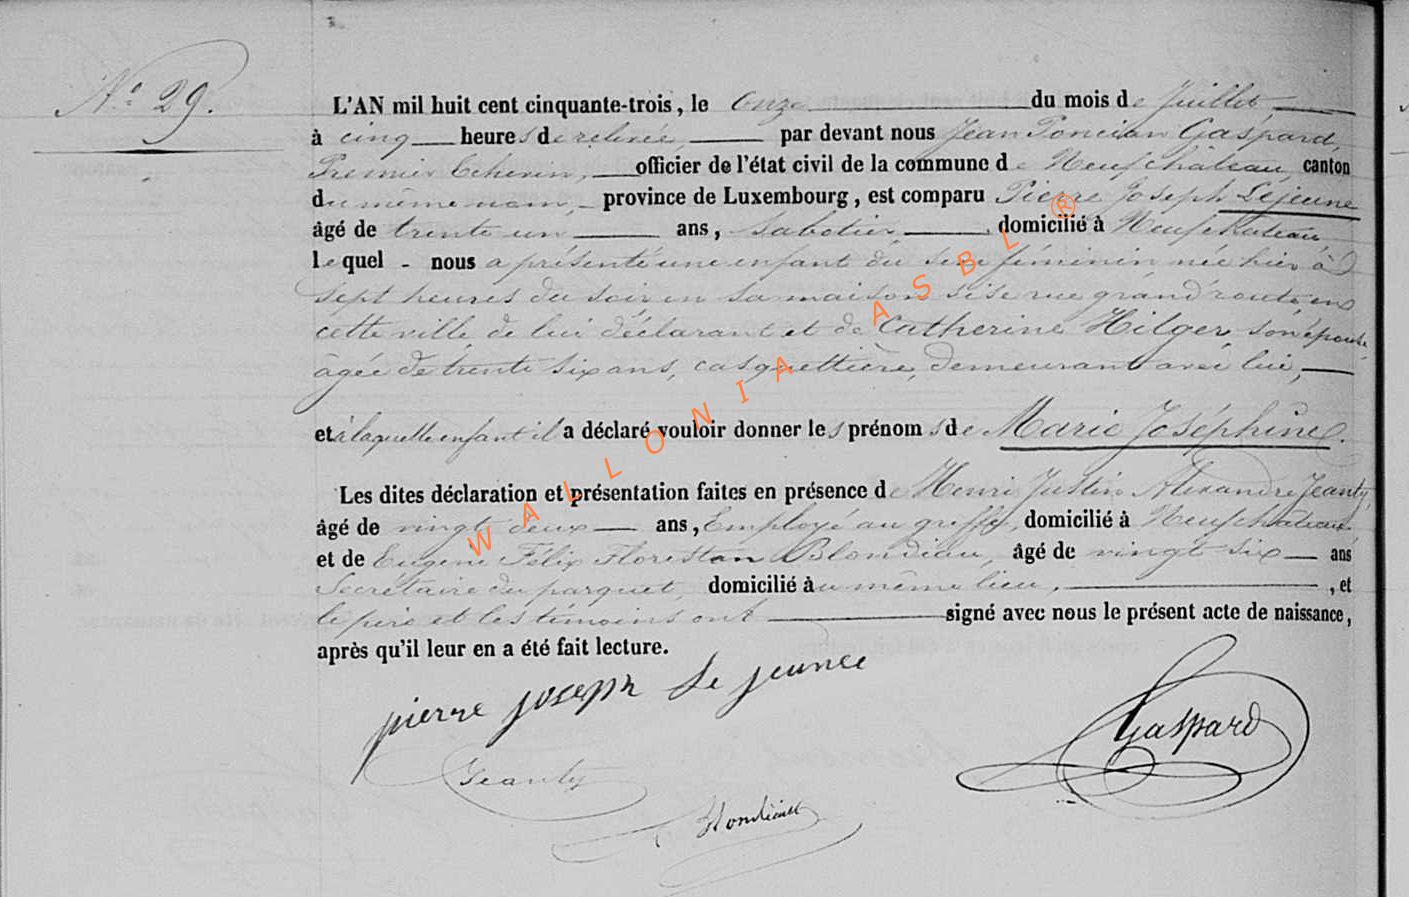 N° 29.
L'AN mil huit cent cinquante-trois, le Onze du mois de Juillet
à cinq heures de relevée, par devant nous Jean Poncian Gaspard,
Premier Echevin, officier de l'état civil de la commune de Neufchâteau, canton
du même nom, province de Luxembourg, est comparu Pierre Joseph Lejeune
âgé de trente un ans, Sabotier domicilié à Neufchateau
lequel nous a présenté une enfant du sexe féminin née hier à
sept heures du soir en sa maison sise rue grand'route en
cette ville, de lui déclarant et de Catherine Hilger, son épouse,
âgée de trente six ans, casquettière, demeurant avec lui,
et à laquelle enfant il a déclaré vouloir donner les prénoms de Marie Joséphine.
Les dites déclaration et présentation faites en présence de Henri Justin Alexandre Jeanty,
âgé de vingt deux ans, Employé au greffe, domicilié à Neufchâteau
et de Eugène Félix Florestan Blondiau, âgé de vingt six ans
Secrétaire du parquet, domicilié au même lieu, , et
le père et les témoins ont signé avec nous le présent acte de naissance,
après qu'il leur en a été fait lecture.
pierre joseph Le jeune
Gaspard
Jeanty
Blondiau
WALLONIA ASBL ®